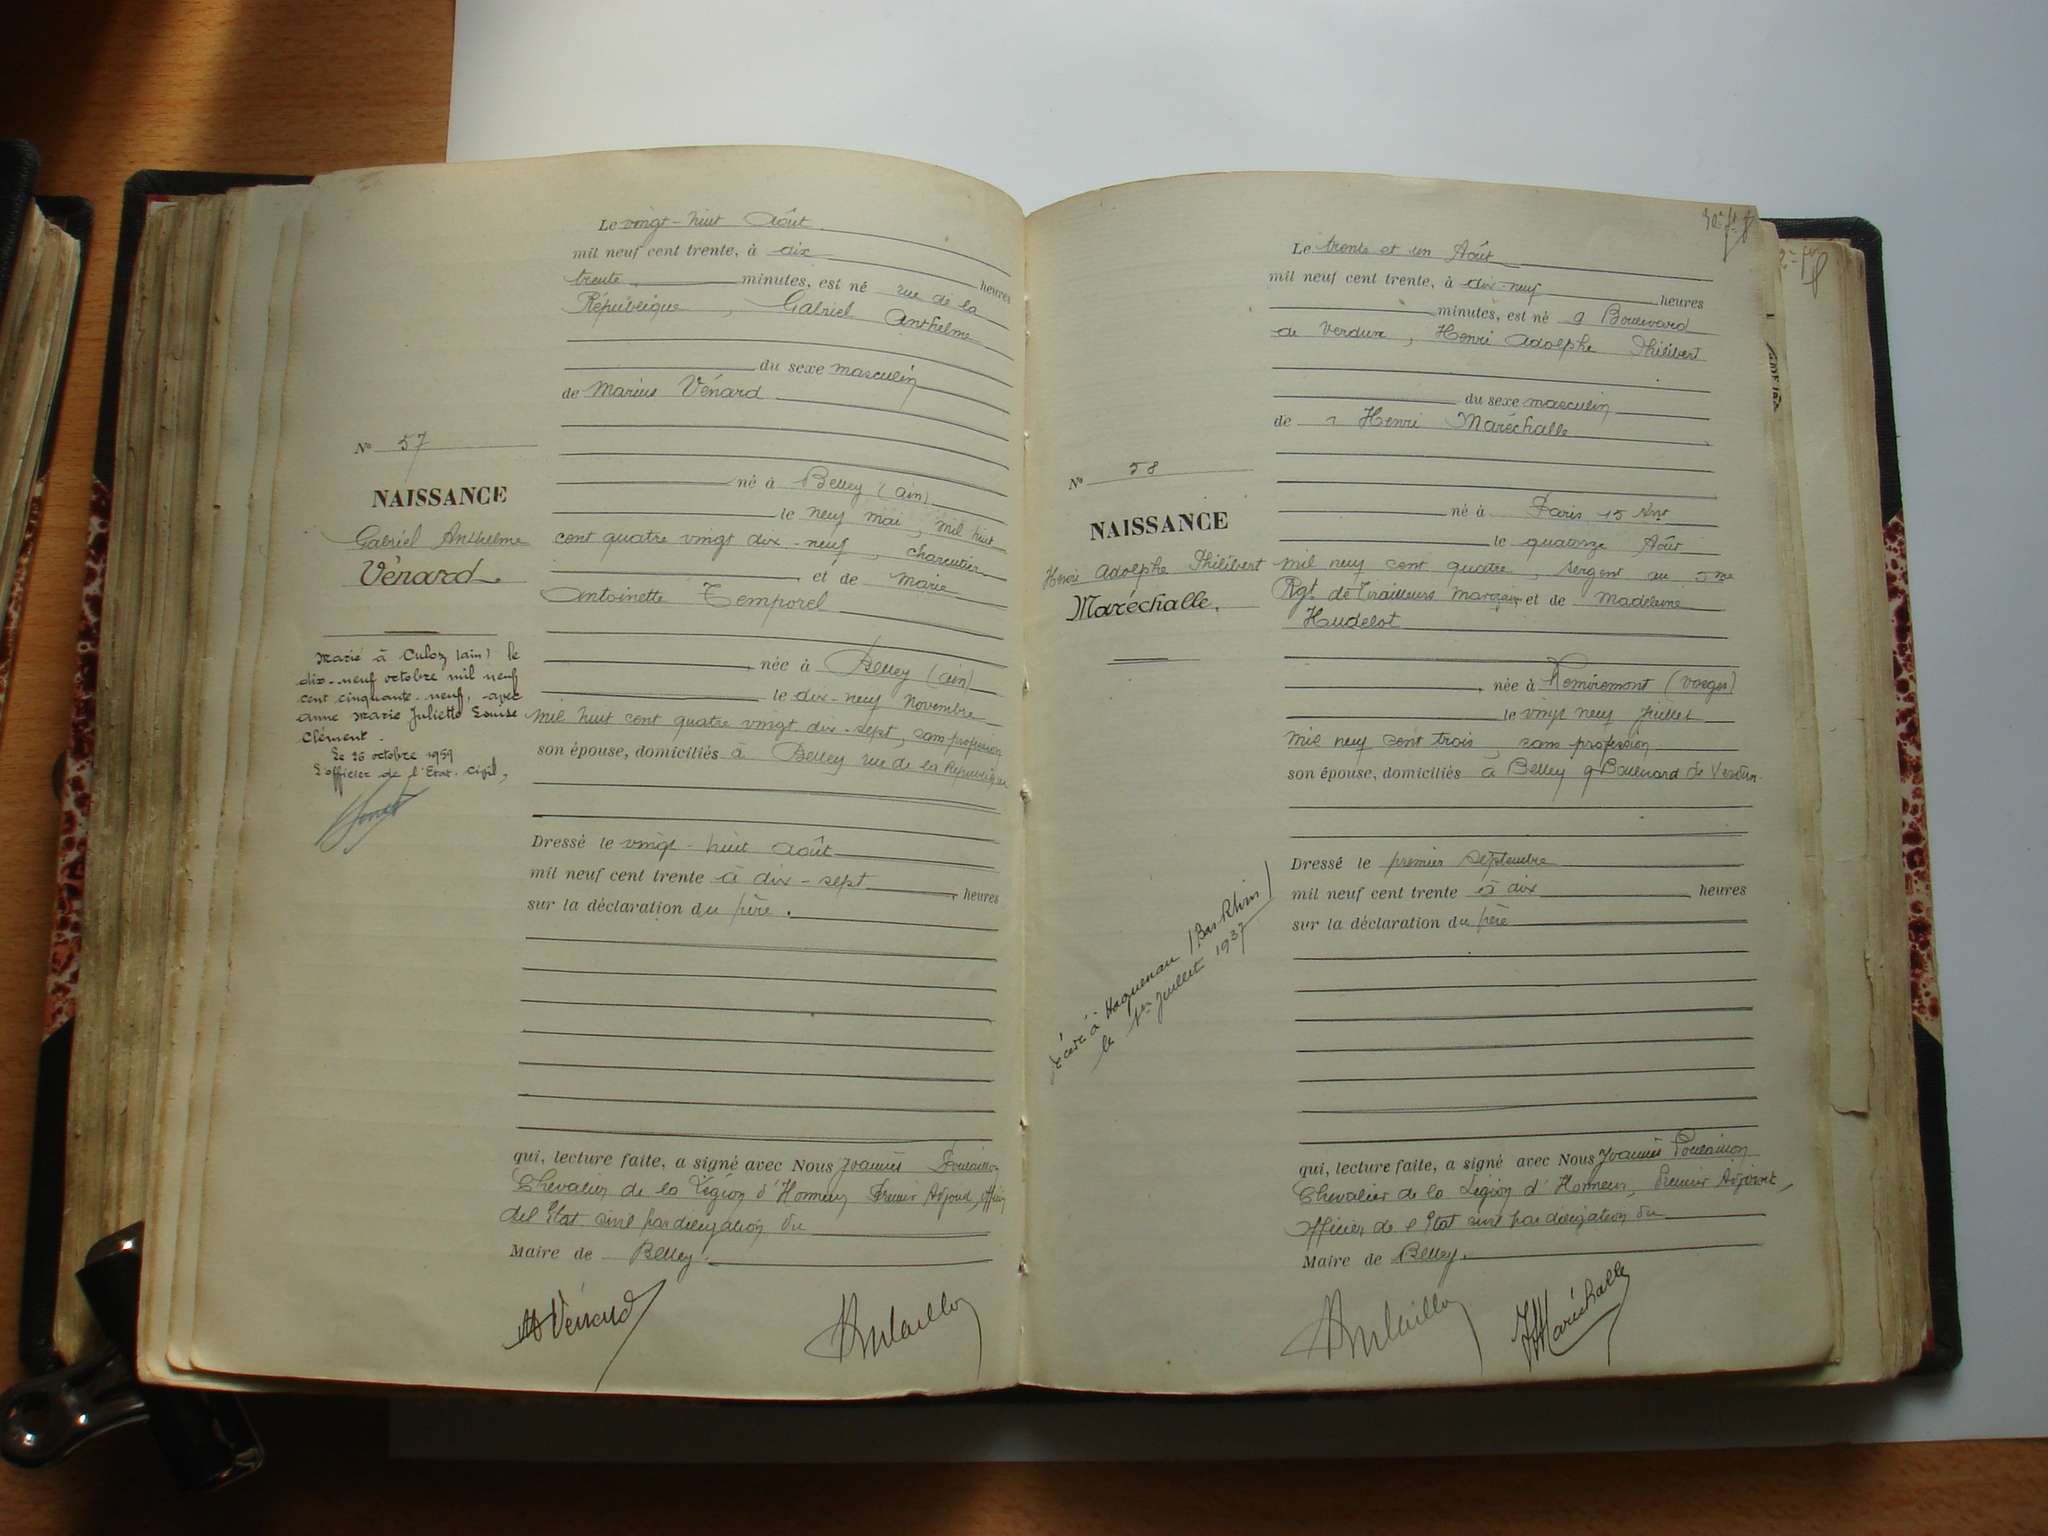 Le vingt-huit Août
mil neuf cent trente, à dix heures
trente minutes, est né rue de la
République, Gabriel Anthelme
du sexe masculin
de Marius Vénard
né à Belley (Ain)
le neuf mai, mil huit
cent quatre vingt dix-neuf, charcutier
et de Marie
Antoinette Temporel
née à Belley (Ain)
le dix-neuf Novembre
mil huit cent quatre vingt dix-sept, sans profession
son épouse, domiciliés à Belley rue de la République
Dressé le vingt-huit août
mil neuf cent trente à dix-sept heures
sur la déclaration du père.
qui, lecture faite, a signé avec Nous Joannès Poulaillon
Chevalier de la Légion d'Honneur Premier Adjoint, Officier
de l'Etat civil par délégation du
Maire de Belley.
Vénard
Poulaillon
N° 57
NAISSANCE
Gabriel Anthelme
Vénard.
Marié à Culoz (Ain) le
dix-neuf octobre mil neuf
cent cinquante-neuf, avec
Anne Marie Juliette Louise
Clément.
Le 26 octobre 1959
L'officier de l'Etat-civil,
Le trente et un Août
mil neuf cent trente, à dix-neuf heures
minutes, est né 9 Boulevard
de Verdun, Henri Adolphe Philibert
du sexe masculin
de Henri Maréchalle
né à Paris 15 Arrt
le quatorze Août
mil neuf cent quatre, sergent au 5me
Rgt de Tirailleurs Marocains et de Madeleine
Hudelot
née à Remiremont (Vosges)
le vingt neuf juillet
mil neuf cent trois, sans profession
son épouse, domiciliés à Belley 9 Boulevard de Verdun
Dressé le premier septembre
mil neuf cent trente à dix heures
sur la déclaration du père
qui, lecture faite, a signé avec Nous Joannès Poulaillon
Chevalier de la Légion d'Honneur, Premier Adjoint,
officier de l'Etat civil par délégation du
Maire de Belley.
Poulaillon
HMaréchalle
N° 58
NAISSANCE
Henri Adolphe Philibert
Maréchalle.
Décédé à Haguenau (Bas Rhin)
le 1er Juillet 1937